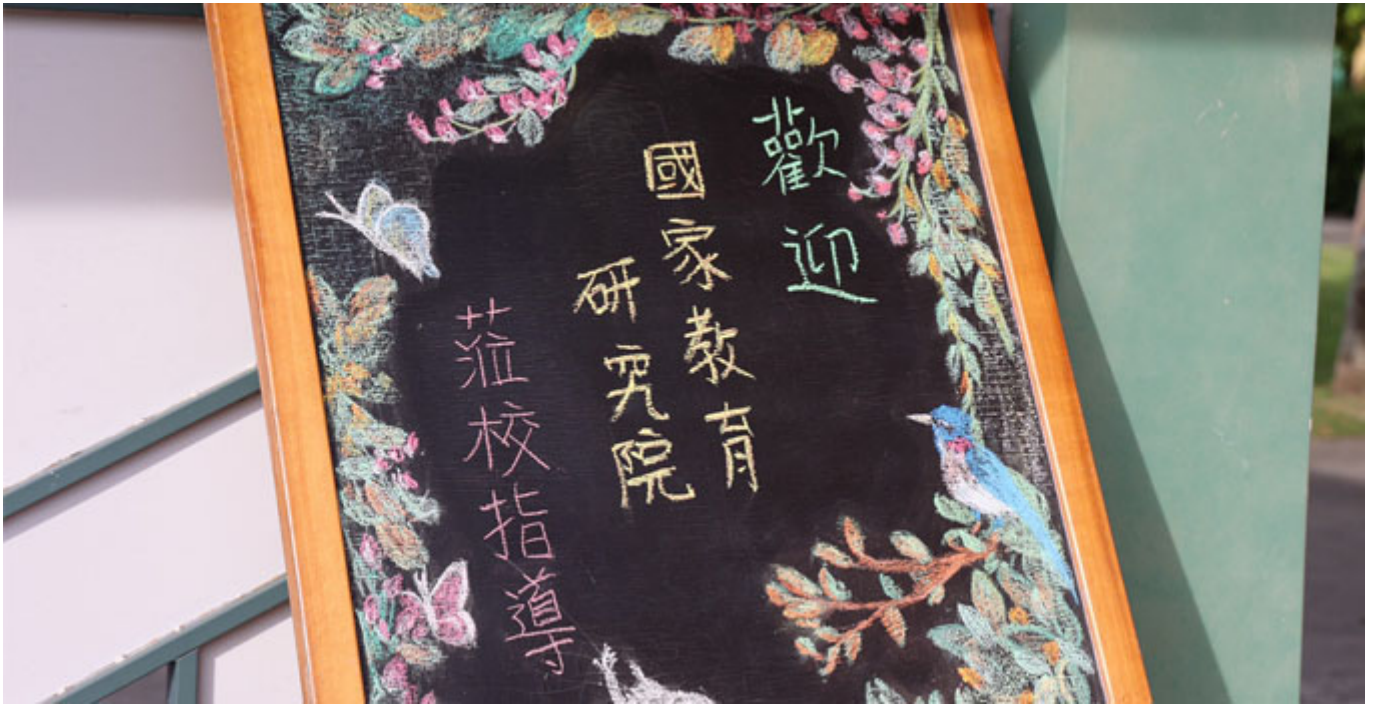 歡迎
國家教育
研究院
蒞校指導